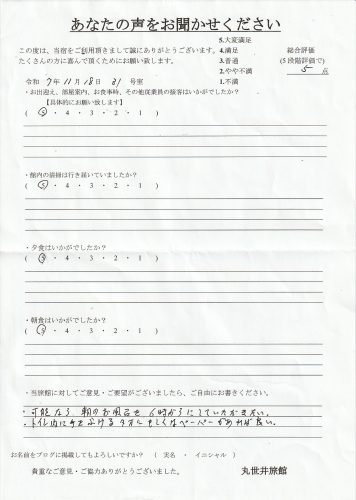 あなたの声をお聞かせください
この度は、当宿をご利用頂きまして誠にありがとうございます。
たくさんの方に喜んで頂くためにお願い致します。
5.大変満足
4.満足
3.普通
2.やや不満
1.不満
総合評価
(5段階評価で)
5 点
令和 7年 11月 18日 31 号室
・お出迎え、部屋案内、お食事時、その他従業員の接客はいかがでしたか?
【具体的にお願い致します】
( 5 ・ 4 ・ 3 ・ 2 ・ 1 )
・館内の清掃は行き届いていましたか?
( 5 ・ 4 ・ 3 ・ 2 ・ 1 )
・夕食はいかがでしたか?
( 5 ・ 4 ・ 3 ・ 2 ・ 1 )
・朝食はいかがでしたか?
( 5 ・ 4 ・ 3 ・ 2 ・ 1 )
・当旅館に対してご意見・ご要望がございましたら、ご自由にお書きください。
・可能なら朝のお風呂を6時からにしていただきたい。
・トイレ内に手をふけるタオルもしくはペーパーがあれば良い。
お名前をブログに掲載してもよろしいですか? ( 実名 ・ イニシャル )
貴重なご意見・ご協力ありがとうございました。
丸世井旅館